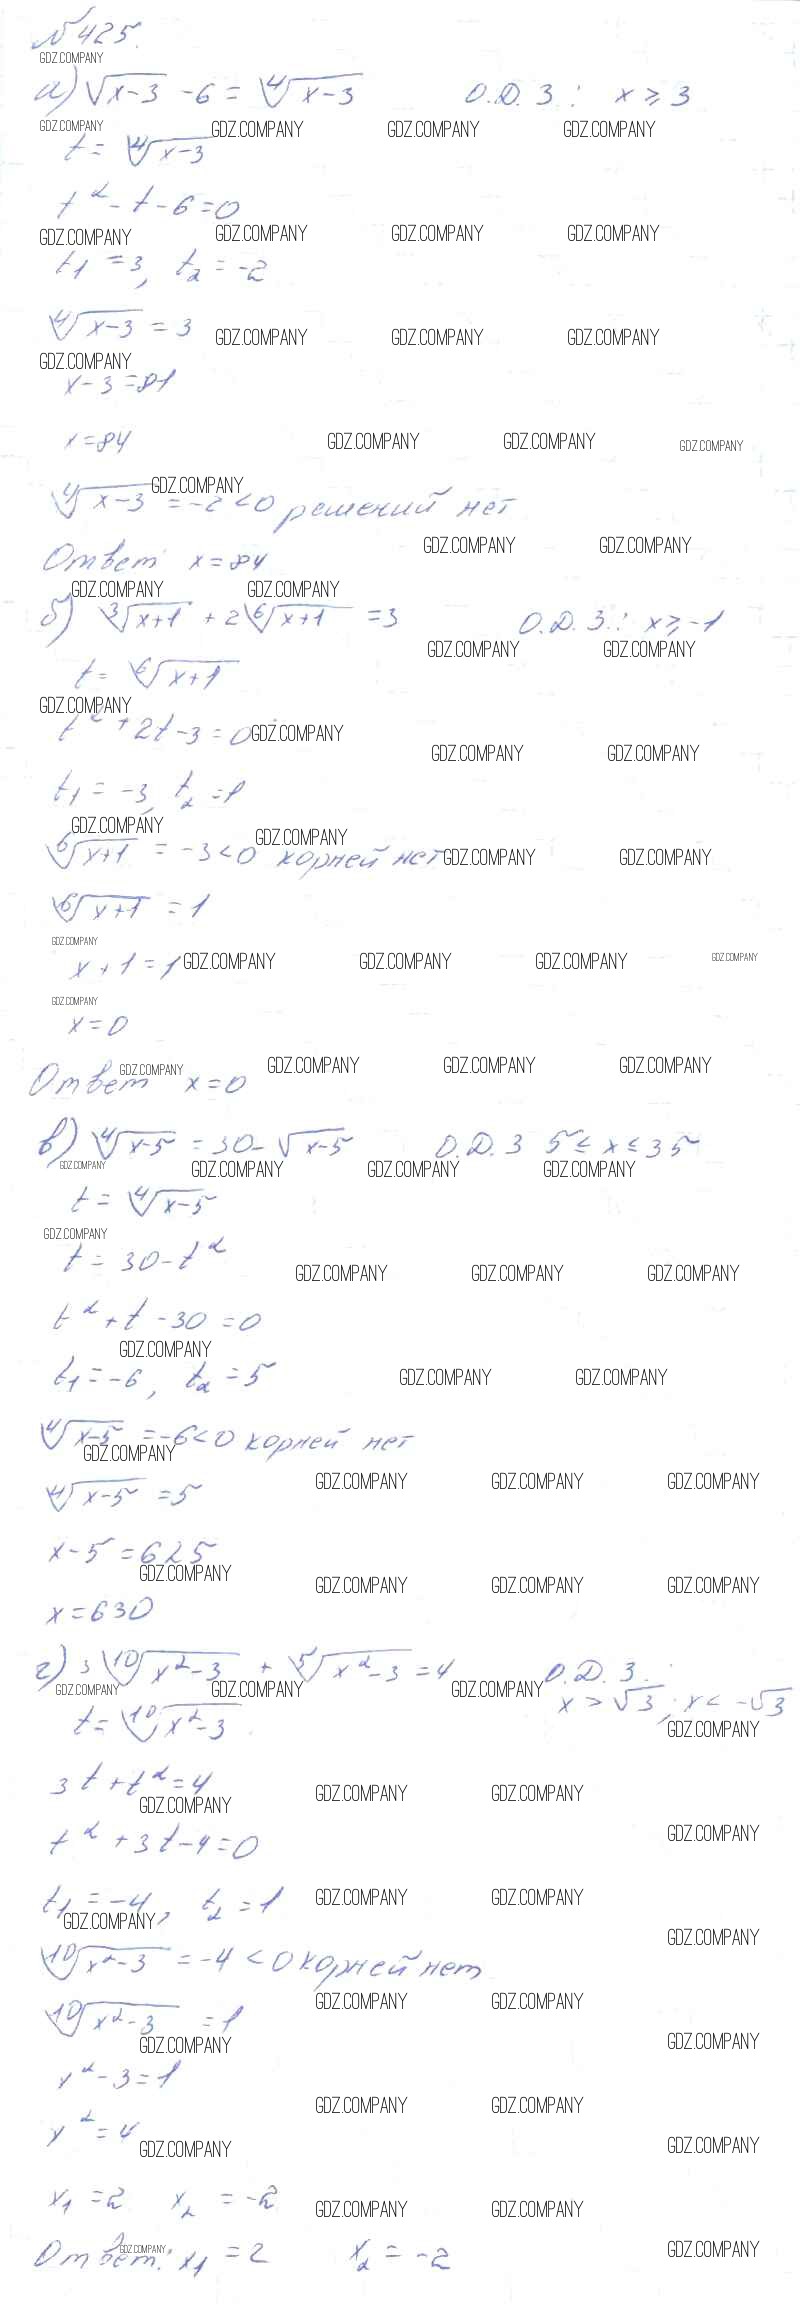 №425.
GDZ.COMPANY
а) √x-3 - 6 = ⁴√x-3 О.Д.З: x ≥ 3
GDZ.COMPANY GDZ.COMPANY GDZ.COMPANY GDZ.COMPANY
t = ⁴√x-3
t² - t - 6 = 0
GDZ.COMPANY GDZ.COMPANY GDZ.COMPANY GDZ.COMPANY
t₁ = 3, t₂ = -2
⁴√x-3 = 3
GDZ.COMPANY GDZ.COMPANY GDZ.COMPANY
GDZ.COMPANY
x - 3 = 81
x = 84
GDZ.COMPANY GDZ.COMPANY GDZ.COMPANY
GDZ.COMPANY
⁴√x-3 = -2 < 0 решений нет
GDZ.COMPANY GDZ.COMPANY
Ответ x = 84
GDZ.COMPANY GDZ.COMPANY
б) ³√x+1 + 2 ⁶√x+1 = 3 О.Д.З.: x ≥ -1
GDZ.COMPANY GDZ.COMPANY
t = ⁶√x+1
GDZ.COMPANY
t² + 2t - 3 = 0
GDZ.COMPANY
GDZ.COMPANY GDZ.COMPANY
t₁ = -3, t₂ = 1
GDZ.COMPANY GDZ.COMPANY
⁶√x+1 = -3 < 0 корней нет
GDZ.COMPANY GDZ.COMPANY
⁶√x+1 = 1
GDZ.COMPANY
x + 1 = 1
GDZ.COMPANY GDZ.COMPANY GDZ.COMPANY GDZ.COMPANY
GDZ.COMPANY
x = 0
GDZ.COMPANY GDZ.COMPANY GDZ.COMPANY GDZ.COMPANY
Ответ x = 0
в) ⁴√x-5 = 30 - √x-5 О.Д.З 5 ≤ x ≤ 35
GDZ.COMPANY GDZ.COMPANY GDZ.COMPANY GDZ.COMPANY
t = ⁴√x-5
GDZ.COMPANY
t = 30 - t²
GDZ.COMPANY GDZ.COMPANY GDZ.COMPANY
t² + t - 30 = 0
GDZ.COMPANY
t₁ = -6, t₂ = 5
GDZ.COMPANY GDZ.COMPANY
⁴√x-5 = -6 < 0 корней нет
GDZ.COMPANY
⁴√x-5 = 5
GDZ.COMPANY GDZ.COMPANY GDZ.COMPANY
x - 5 = 625
GDZ.COMPANY
GDZ.COMPANY GDZ.COMPANY GDZ.COMPANY
x = 630
г) 3 ¹⁰√x²-3 + ⁵√x²-3 = 4 О.Д.З.:
GDZ.COMPANY GDZ.COMPANY GDZ.COMPANY
x > √3; x < -√3
t = ¹⁰√x²-3
GDZ.COMPANY
3t + t² = 4
GDZ.COMPANY GDZ.COMPANY GDZ.COMPANY
t² + 3t - 4 = 0
GDZ.COMPANY
t₁ = -4, t₂ = 1
GDZ.COMPANY GDZ.COMPANY GDZ.COMPANY
GDZ.COMPANY
¹⁰√x²-3 = -4 < 0 корней нет
GDZ.COMPANY GDZ.COMPANY
¹⁰√x²-3 = 1
GDZ.COMPANY GDZ.COMPANY
x² - 3 = 1
GDZ.COMPANY GDZ.COMPANY
x² = 4
GDZ.COMPANY GDZ.COMPANY
x₁ = 2 x₂ = -2
GDZ.COMPANY GDZ.COMPANY
GDZ.COMPANY GDZ.COMPANY
Ответ: x₁ = 2 x₂ = -2